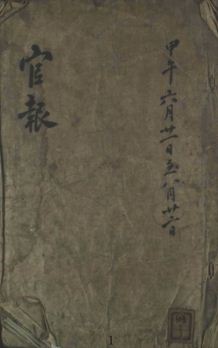 甲午六月廿一日至八月廿二日
官報
1